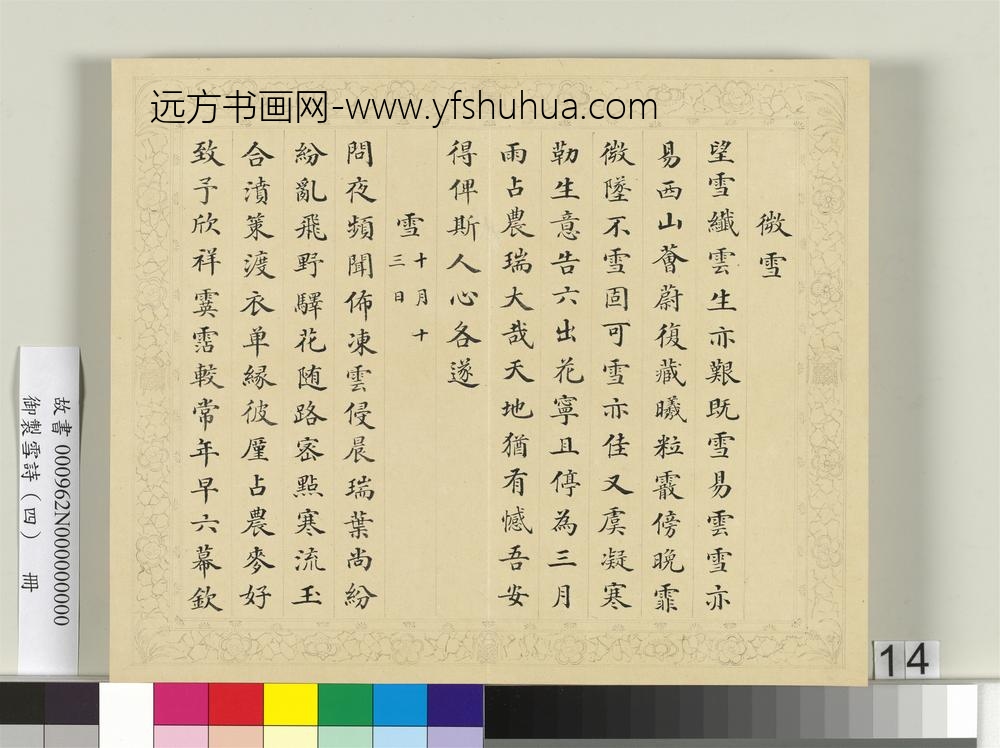 远方书画网-www.yfshuhua.com
微雪
望雪纖雲生亦艱既雪易雲雪亦
易西山薈蔚復藏曦粒霰傍晚霏
微墜不雪固可雪亦佳又虞凝寒
勒生意告六出花寧且停為三月
雨占農瑞大哉天地猶有憾吾安
得俾斯人心各遂
雪十月十三日
問夜頻聞佈凍雲侵晨瑞葉尚紛
紛亂飛野驛花随路密點寒流玉
合濆策渡衣单緣彼廑占農麥好
致予欣祥霙霑較常年早六幕欽
故書 000962N000000000
御製雪詩(四) 冊
14